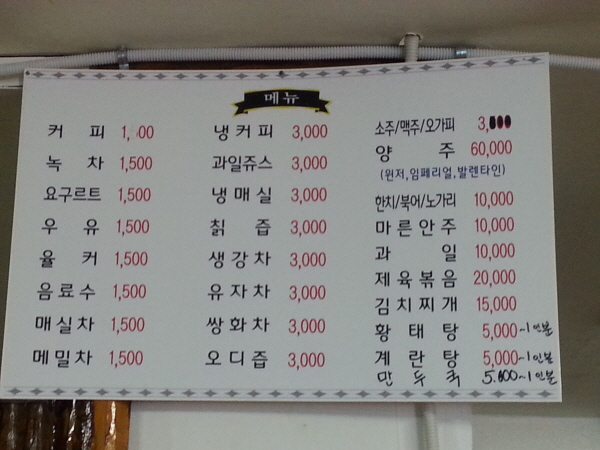 메뉴
커피 1,500
녹차 1,500
요구르트 1,500
우유 1,500
율커 1,500
음료수 1,500
매실차 1,500
메밀차 1,500
냉커피 3,000
과일쥬스 3,000
냉매실 3,000
칡즙 3,000
생강차 3,000
유자차 3,000
쌍화차 3,000
오디즙 3,000
소주/맥주/오가피 3,000
양주 60,000
(윈저,임페리얼,발렌타인)
한치/북어/노가리 10,000
마른안주 10,000
과일 10,000
제육볶음 20,000
김치찌개 15,000
황태탕 5,000~1인분
계란탕 5,000~1인분
만두국 5.000~1인분